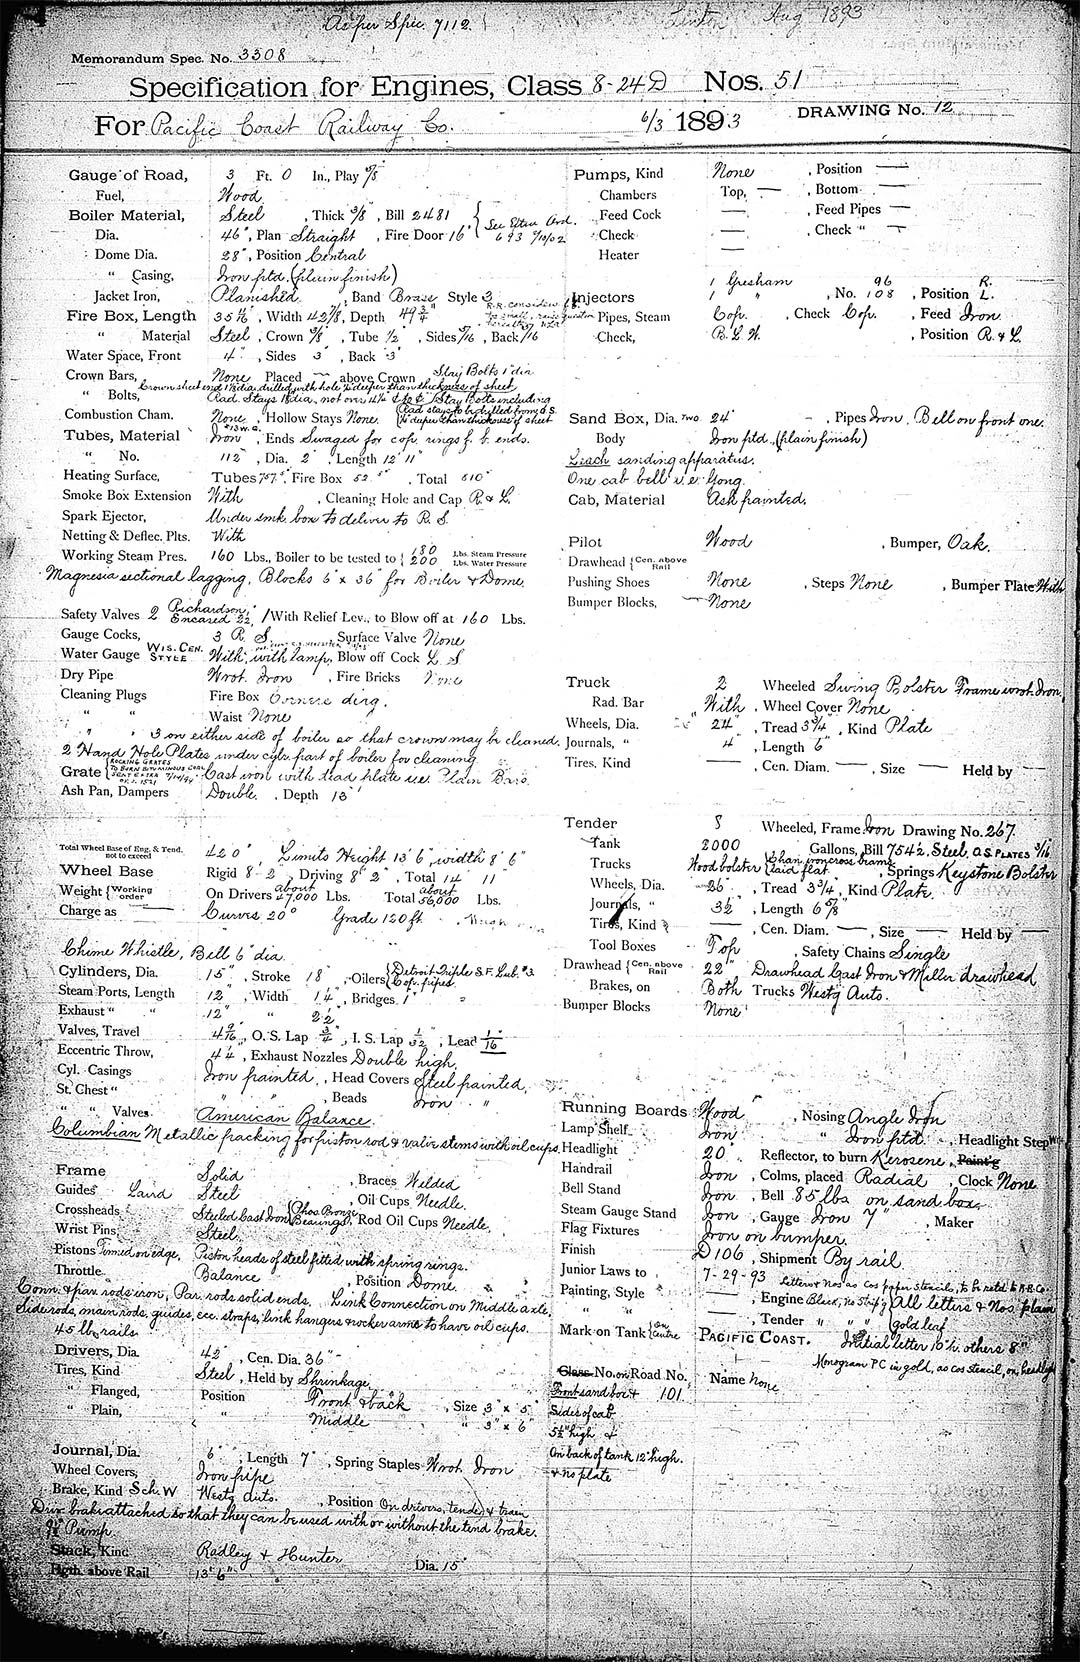 As per Spec. 7112. Aug 1893
Memorandum Spec. No. 3308
Specification for Engines, Class 8-24 D Nos. 51
For Pacific Coast Railway Co. 6/3 1893 DRAWING No. 12
Gauge of Road, 3 Ft. 0 In., Play 5/8
Fuel, Wood
Boiler Material, Steel, Thick 3/8", Bill 2481
Dia. 46", Plan Straight, Fire Door 16" { See Extra Ord. 693 9/10/02
Dome Dia. 28", Position Central
" Casing, Iron ptd. (plain finish)
Jacket Iron, Planished, Band Brass Style 3
Fire Box, Length 35 , Width 42 7/8, Depth 49 3/4"
" Material Steel, Crown 3/8", Tube 1/2", Sides 5/16, Back 5/16
Water Space, Front 4", Sides 3", Back 3"
Crown Bars, None Placed — above Crown Stay Bolts 1" dia
Crown sheet end 1 1/8 dia, drilled with hole deeper than thickness of sheet
" Bolts, Rad. Stays 1 1/8 dia, not over Stay Bolts including
Combustion Cham. None, Hollow Stays None. Rad stays to be drilled from O.S. deeper than thickness of sheet
Tubes, Material Iron #13 W.G., Ends Swaged for cop. rings f. b. ends.
" No. 112, Dia. 2", Length 12' 11"
Heating Surface, Tubes 757.5, Fire Box 52.5, Total 810
Smoke Box Extension With, Cleaning Hole and Cap R. & L.
Spark Ejector, Under smk box to deliver to R. S.
Netting & Deflec. Plts. With
Working Steam Pres. 160 Lbs., Boiler to be tested to { 180 Lbs. Steam Pressure
200 Lbs. Water Pressure
Magnesia sectional lagging, Blocks 6" x 36" for Boiler & Dome.
Safety Valves 2 Richardson Encased 2 1/2, 1 With Relief Lev., to Blow off at 160 Lbs.
Gauge Cocks, 3 R. S., Surface Valve None
Water Gauge WIS. CEN. STYLE With, with lamp, Blow off Cock L. S
Dry Pipe Wrot. Iron, Fire Bricks None
Cleaning Plugs Fire Box Corners diag.
" " Waist None
" " 3 on either side of boiler so that crown may be cleaned.
2 Hand Hole Plates under cylr. part of boiler for cleaning
Grate { ROCKING GRATES TO BURN BITUMINOUS COAL SENT EXTRA O.S. 1521 Cast iron with dead plate i.e. Plain Bars.
Ash Pan, Dampers Double, Depth 13"
Total Wheel Base of Eng. & Tend. not to exceed 42' 0", Limits Height 13' 6", width 8' 6"
Wheel Base Rigid 8' 2", Driving 8' 2", Total 14' 11"
Weight { Working order On Drivers about 47,000 Lbs. Total about 56,000 Lbs.
Charge as — Curves 20° Grade 120 ft
Chime Whistle, Bell 6" dia
Cylinders, Dia. 15", Stroke 18", Oilers { Detroit Triple S.F. Lub. #3 Cop. pipes.
Steam Ports, Length 12", Width 1 1/4", Bridges 1"
Exhaust " " 12" " 2 1/2"
Valves, Travel 4 9/16, O. S. Lap 3/4", I. S. Lap 1/32", Lead 1/16"
Eccentric Throw, 4 1/4, Exhaust Nozzles Double high.
Cyl. Casings Iron painted, Head Covers Steel painted,
St. Chest " " ", Beads Iron "
" " Valves American Balance
Columbian Metallic packing for piston rod & valve stems with oil cups.
Frame Solid, Braces Welded
Guides Laird Steel, Oil Cups Needle.
Crossheads Steeled Cast Iron { Phos Bronze Bearings, Rod Oil Cups Needle
Wrist Pins Steel
Pistons Turned on edge, Piston heads of steel fitted with spring rings.
Throttle Balance, Position Dome.
Conn. & par. rods iron, Par. rods solid ends. Link Connection on Middle axle,
Side rods, main rods, guides, ecc. straps, link hangers & rocker arms to have oil cups.
45 lb rails
Drivers, Dia. 42", Cen. Dia. 36"
Tires, Kind Steel, Held by Shrinkage
" Flanged, Position Front & back, Size 3" x 5"
" Plain, " Middle " 3" x 6"
Journal, Dia. 6", Length 7", Spring Staples Wrot. Iron
Wheel Covers, Iron pipe
Brake, Kind Sch. W Westg Auto., Position On drivers, tender & train
Driv. brake attached so that they can be used with or without the tend brake.
9 1/2" Pump
Stack, Kind Radley & Hunter Dia. 15"
Hgth. above Rail 13' 6"
Pumps, Kind None, Position —
Chambers Top, —, Bottom —
Feed Cock —, Feed Pipes —
Check —, Check " —
Heater —
Injectors 1 Gresham 1 ", No. 96 108, Position R. L.
Pipes, Steam Cop., Check Cop., Feed Iron
Check, B. L. W., Position R & L.
Sand Box, Dia. Two 24", Pipes Iron. Bell on front one.
Body Iron ptd. (plain finish)
Leach sanding apparatus.
One cab bell i.e. Gong.
Cab, Material Ash painted.
Pilot Wood, Bumper, Oak.
Drawhead { Cen. above Rail
Pushing Shoes None, Steps None, Bumper Plate With
Bumper Blocks, — None
Truck 2 Wheeled Swing Bolster Frame wrot. Iron,
Rad. Bar With, Wheel Cover None
Wheels, Dia. 24", Tread 3 3/4", Kind Plate
Journals, " 4", Length 6"
Tires, Kind —, Cen. Diam. —, Size — Held by —
Tender 8 Wheeled, Frame Iron Drawing No. 267.
Tank 2000 Gallons, Bill 7542, Steel, O.S. PLATES 3/16
Trucks Wood bolster { Chan iron cross beams laid flat, Springs Keystone Bolster
Wheels, Dia. 26", Tread 3 3/4, Kind Plate.
Journals, " 3 1/2", Length 6 5/8"
Tires, Kind —, Cen. Diam. —, Size — Held by —
Tool Boxes Top, Safety Chains Single
Drawhead { Cen. above Rail 22" Drawhead Cast Iron & Miller drawhead
Brakes, on Both Trucks Westg Auto.
Bumper Blocks None
Running Boards Wood, Nosing Angle Iron
Lamp Shelf Iron " Iron ptd., Headlight Step With
Headlight 20", Reflector, to burn Kerosene, Paint'g
Handrail Iron, Colms, placed Radial, Clock None
Bell Stand Iron, Bell 85 lbs on sand box,
Steam Gauge Stand Iron, Gauge Iron 7", Maker
Flag Fixtures Iron on bumper.
Finish D 106, Shipment By rail
Junior Laws to 7-29-93 Letters & Nos as Cos paper stencils, to be retd to R.R. Co.
Painting, Style —, Engine Black, no strip'g All letters & Nos. plain
" " —, Tender " " " gold leaf
Mark on Tank { on Centre PACIFIC COAST. Initial letter 10" h. others 8"
Monogram PC in gold, as cos stencil, on headlight
Class No. on Road No., Name None
Front sand box & 101.
Sides of cab
5 1/2" high &
On back of tank 12" high.
& no plate